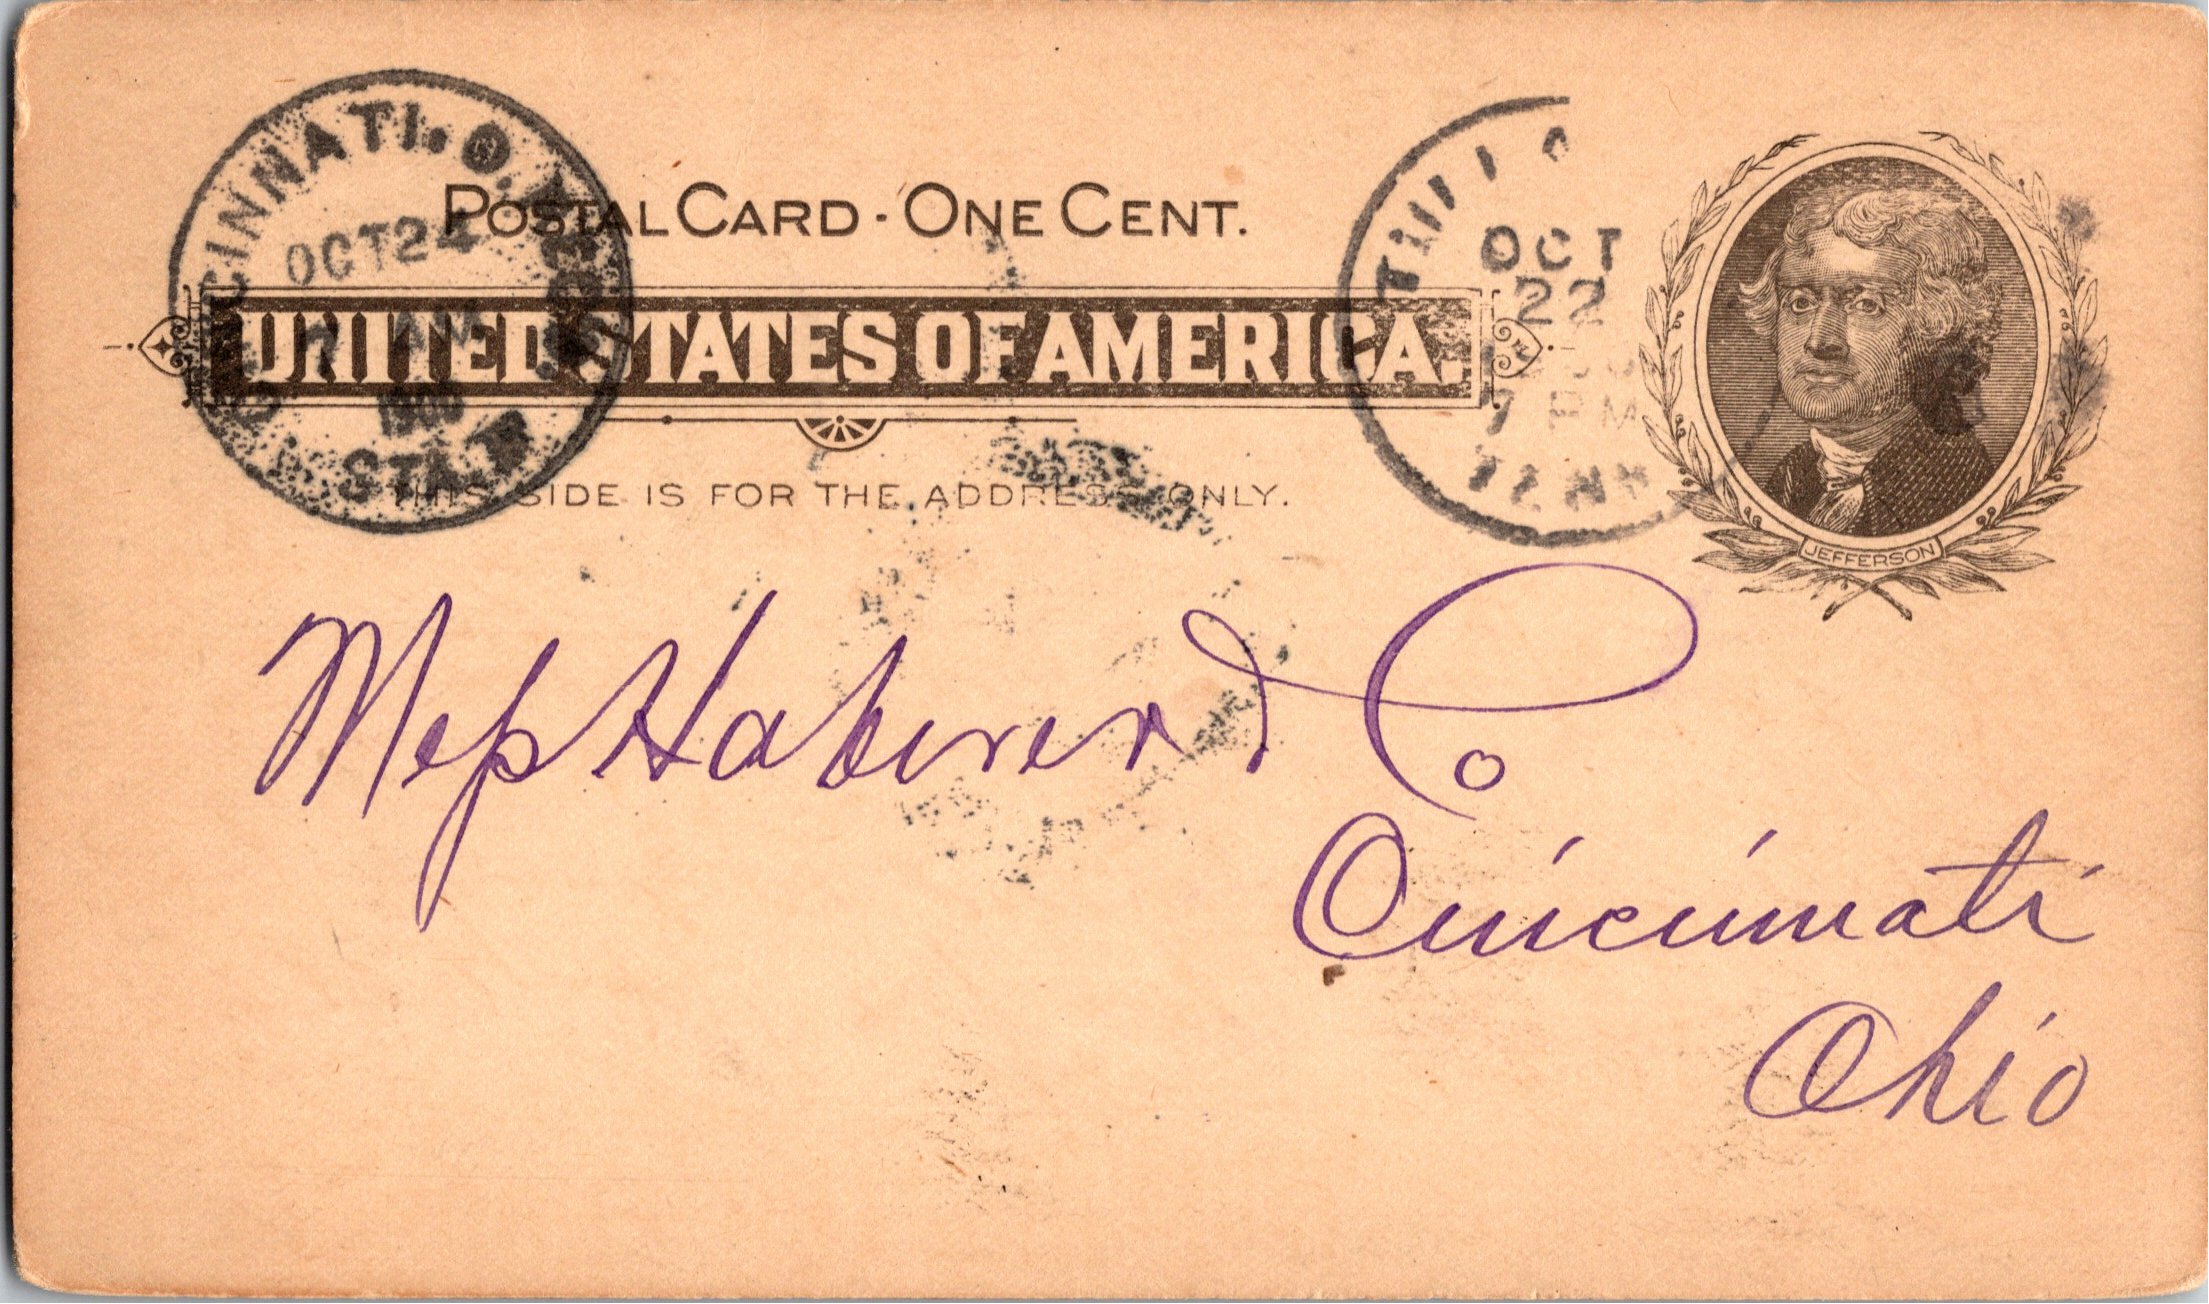 CINCINNATI, O.
REC'D
OCT 24
1900
STA.
POSTAL CARD - ONE CENT.
UNITED STATES OF AMERICA.
THIS SIDE IS FOR THE ADDRESS ONLY.
OCT
22
7 PM
TENN
JEFFERSON
Haberer & Co
Cincinnati
Ohio